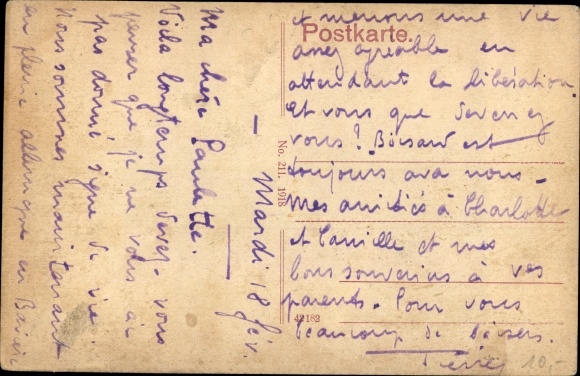 Mardi 18 fév.
Ma chère Paulette.
Voilà longtemps devez-vous
penser que je ne vous ai
pas donné signe de vie.
Nous sommes maintenant
en pleine
en Bavière
et menons une vie
assez agréable en
attendant la libération.
Et vous que devenez
vous? Boisard est
toujours avec nous -
Mes amitiés à Charlotte
et Camille et mes
bons souvenirs à vos
parents. Pour vous
beaucoup de baisers.
Postkarte.
No. 211, 1918
42182
10,-